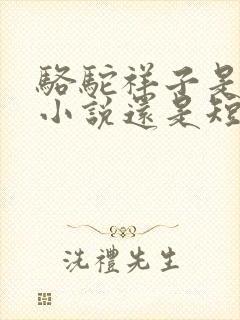 駱駝祥子是
小說還是短
洗禮先生